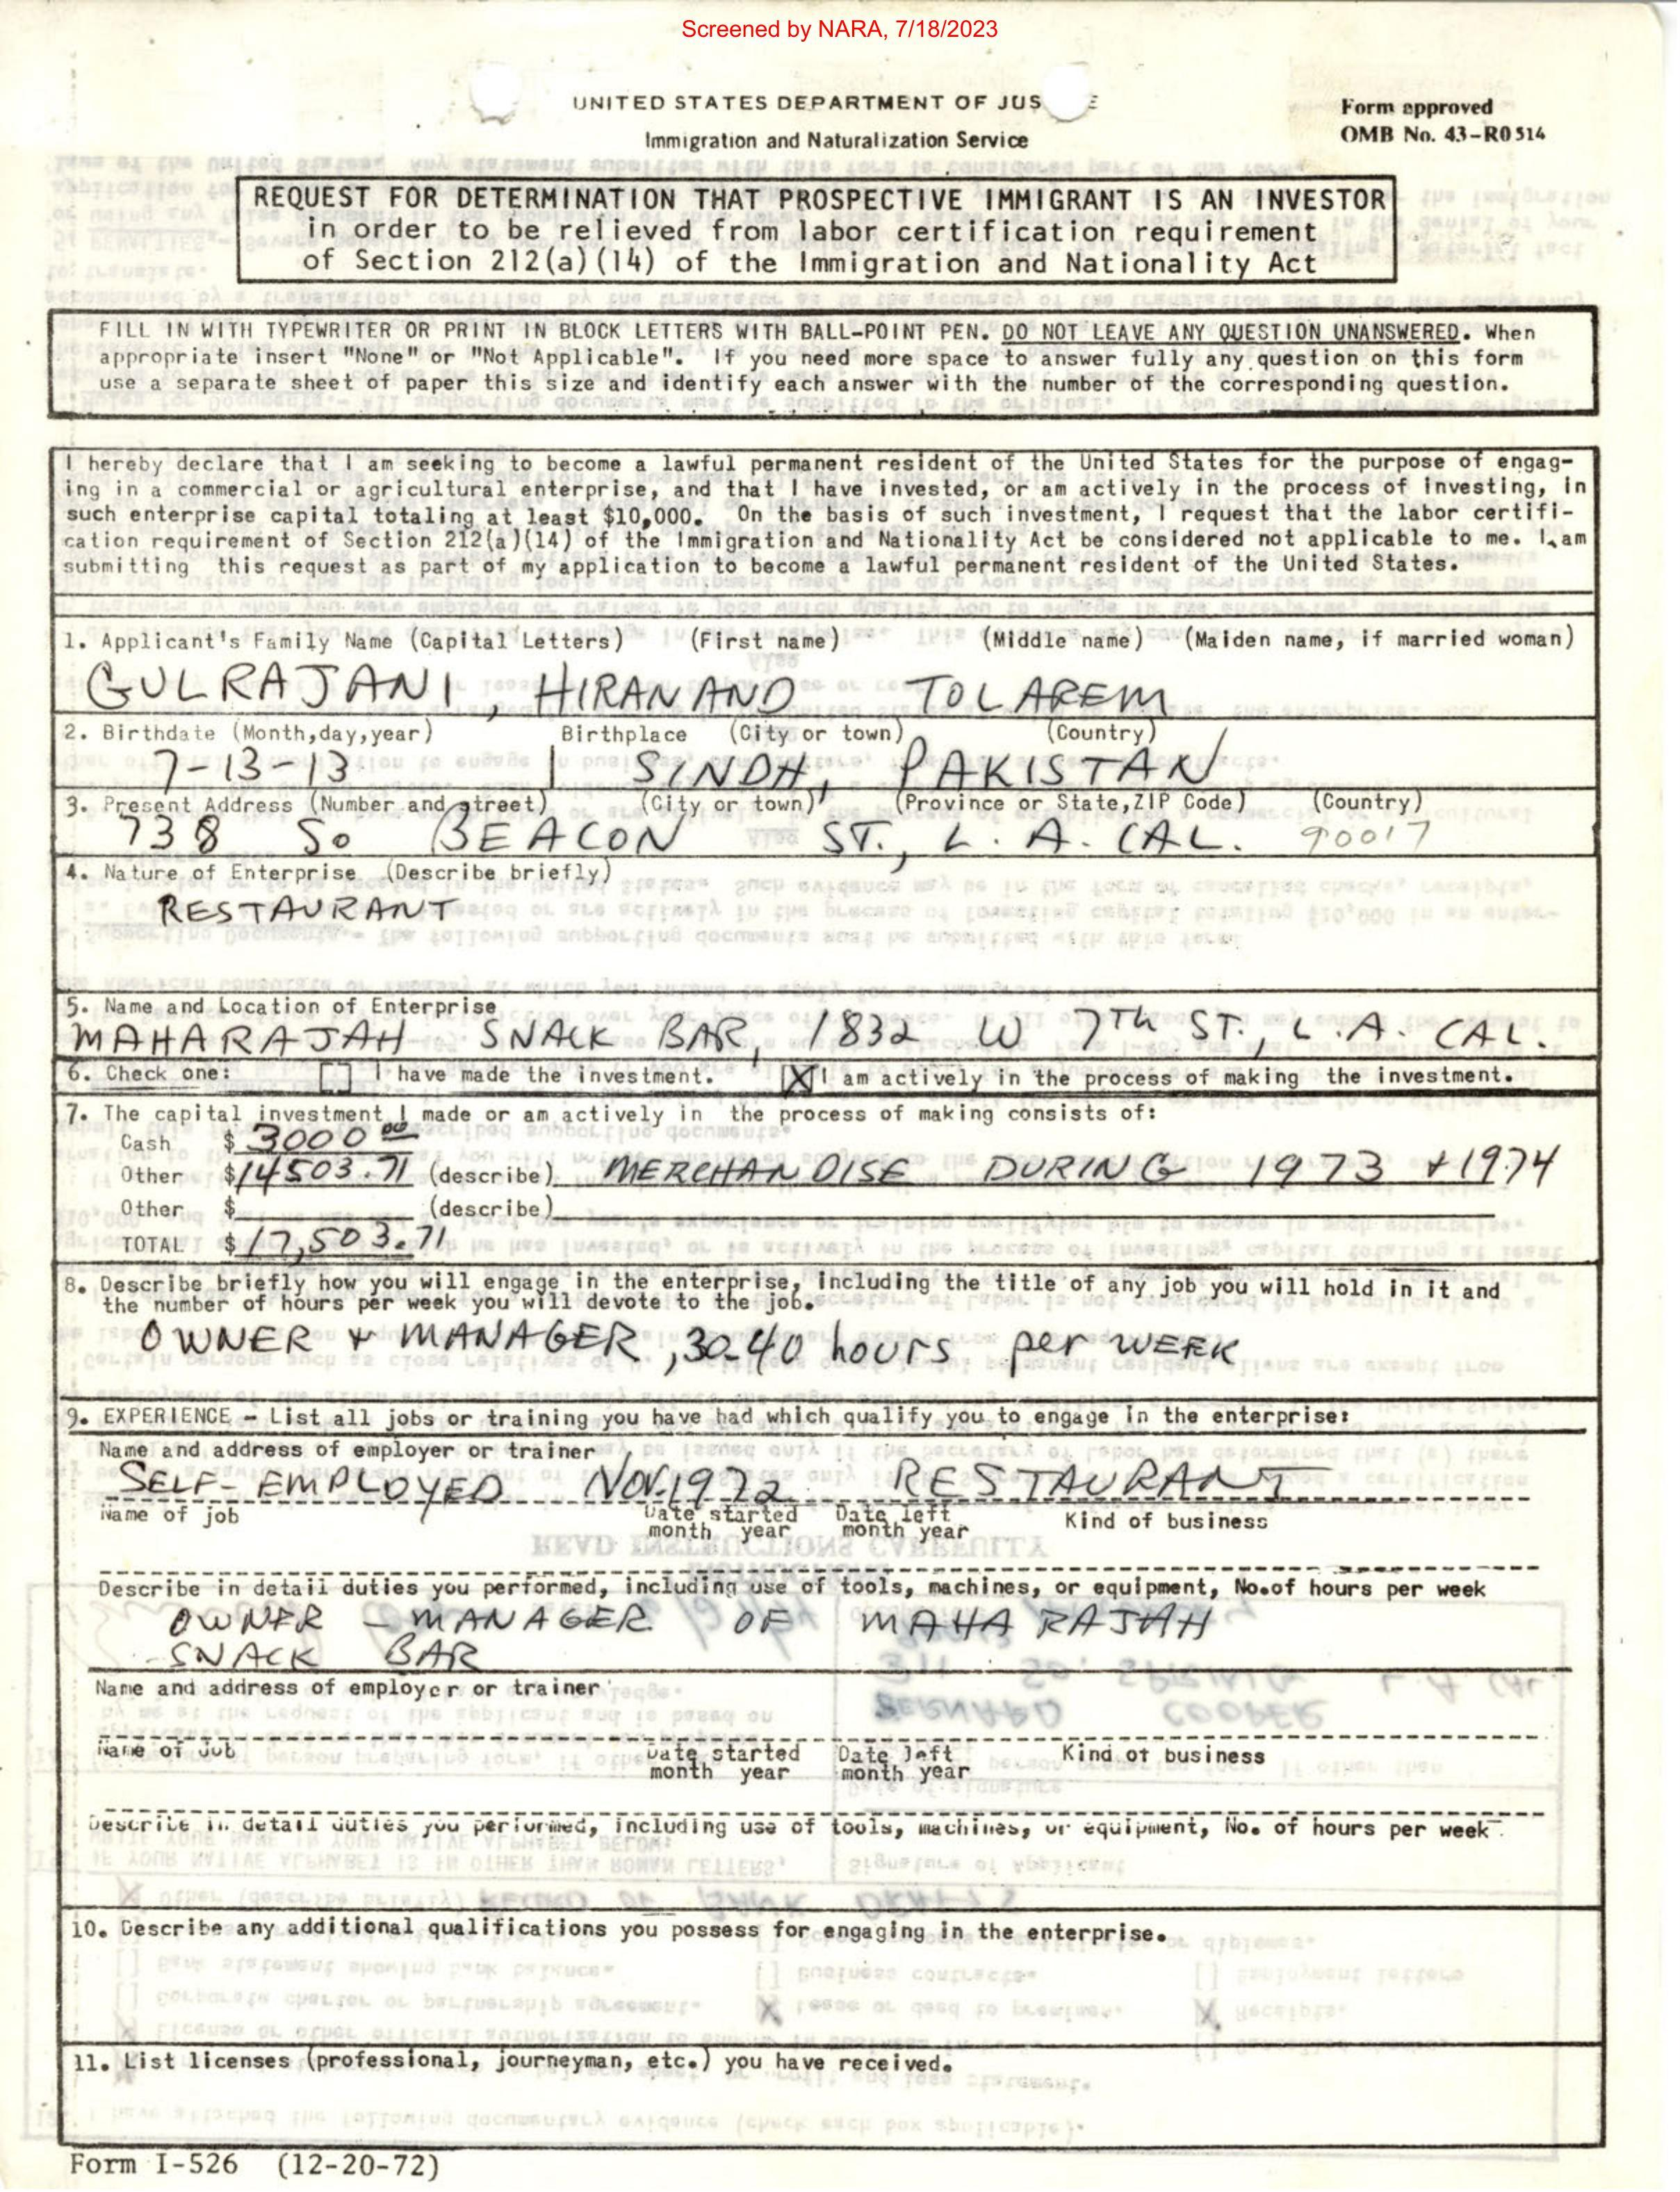 Screened by NARA, 7/18/2023
UNITED STATES DEPARTMENT OF JUS E
Immigration and Naturalization Service
Form approved
OMB No. 43-R0514
REQUEST FOR DETERMINATION THAT PROSPECTIVE IMMIGRANT IS AN INVESTOR
in order to be relieved from labor certification requirement
of Section 212(a)(14) of the Immigration and Nationality Act
FILL IN WITH TYPEWRITER OR PRINT IN BLOCK LETTERS WITH BALL-POINT PEN. DO NOT LEAVE ANY QUESTION UNANSWERED. When
appropriate insert "None" or "Not Applicable". If you need more space to answer fully any question on this form
use a separate sheet of paper this size and identify each answer with the number of the corresponding question.
I hereby declare that I am seeking to become a lawful permanent resident of the United States for the purpose of engag-
ing in a commercial or agricultural enterprise, and that I have invested, or am actively in the process of investing, in
such enterprise capital totaling at least $10,000. On the basis of such investment, I request that the labor certifi-
cation requirement of Section 212(a)(14) of the Immigration and Nationality Act be considered not applicable to me. I am
submitting this request as part of my application to become a lawful permanent resident of the United States.
1. Applicant's Family Name (Capital Letters) (First name) (Middle name) (Maiden name, if married woman)
GULRAJANI, HIRANAND TOLAREM
2. Birthdate (Month,day,year) Birthplace (City or town) (Country)
7-13-13 SINDH, PAKISTAN
3. Present Address (Number and street) (City or town) (Province or State,ZIP Code) (Country)
738 So BEACON ST., L.A. CAL. 90017
4. Nature of Enterprise (Describe briefly)
RESTAURANT
5. Name and Location of Enterprise
MAHARAJAH SNACK BAR, 1832 W 7Th ST., L.A. CAL.
6. Check one: [ ] I have made the investment. [X] I am actively in the process of making the investment.
7. The capital investment I made or am actively in the process of making consists of:
Cash $ 3000 00
Other $ 14503.71 (describe) MERCHANDISE DURING 1973 + 1974
Other $ (describe)
TOTAL $ 17,503.71
8. Describe briefly how you will engage in the enterprise, including the title of any job you will hold in it and
the number of hours per week you will devote to the job.
OWNER + MANAGER, 30-40 hours per WEEK
9. EXPERIENCE - List all jobs or training you have had which qualify you to engage in the enterprise:
Name and address of employer or trainer
SELF-EMPLOYED Nov.1972 RESTAURANT
Name of job Date started Date left Kind of business
month year month year
Describe in detail duties you performed, including use of tools, machines, or equipment, No.of hours per week
OWNER - MANAGER OF MAHA RAJAH
SNACK BAR
Name and address of employer or trainer
Name of job Date started Date left Kind of business
month year month year
Describe in detail duties you performed, including use of tools, machines, or equipment, No. of hours per week
10. Describe any additional qualifications you possess for engaging in the enterprise.
11. List licenses (professional, journeyman, etc.) you have received.
Form I-526 (12-20-72)